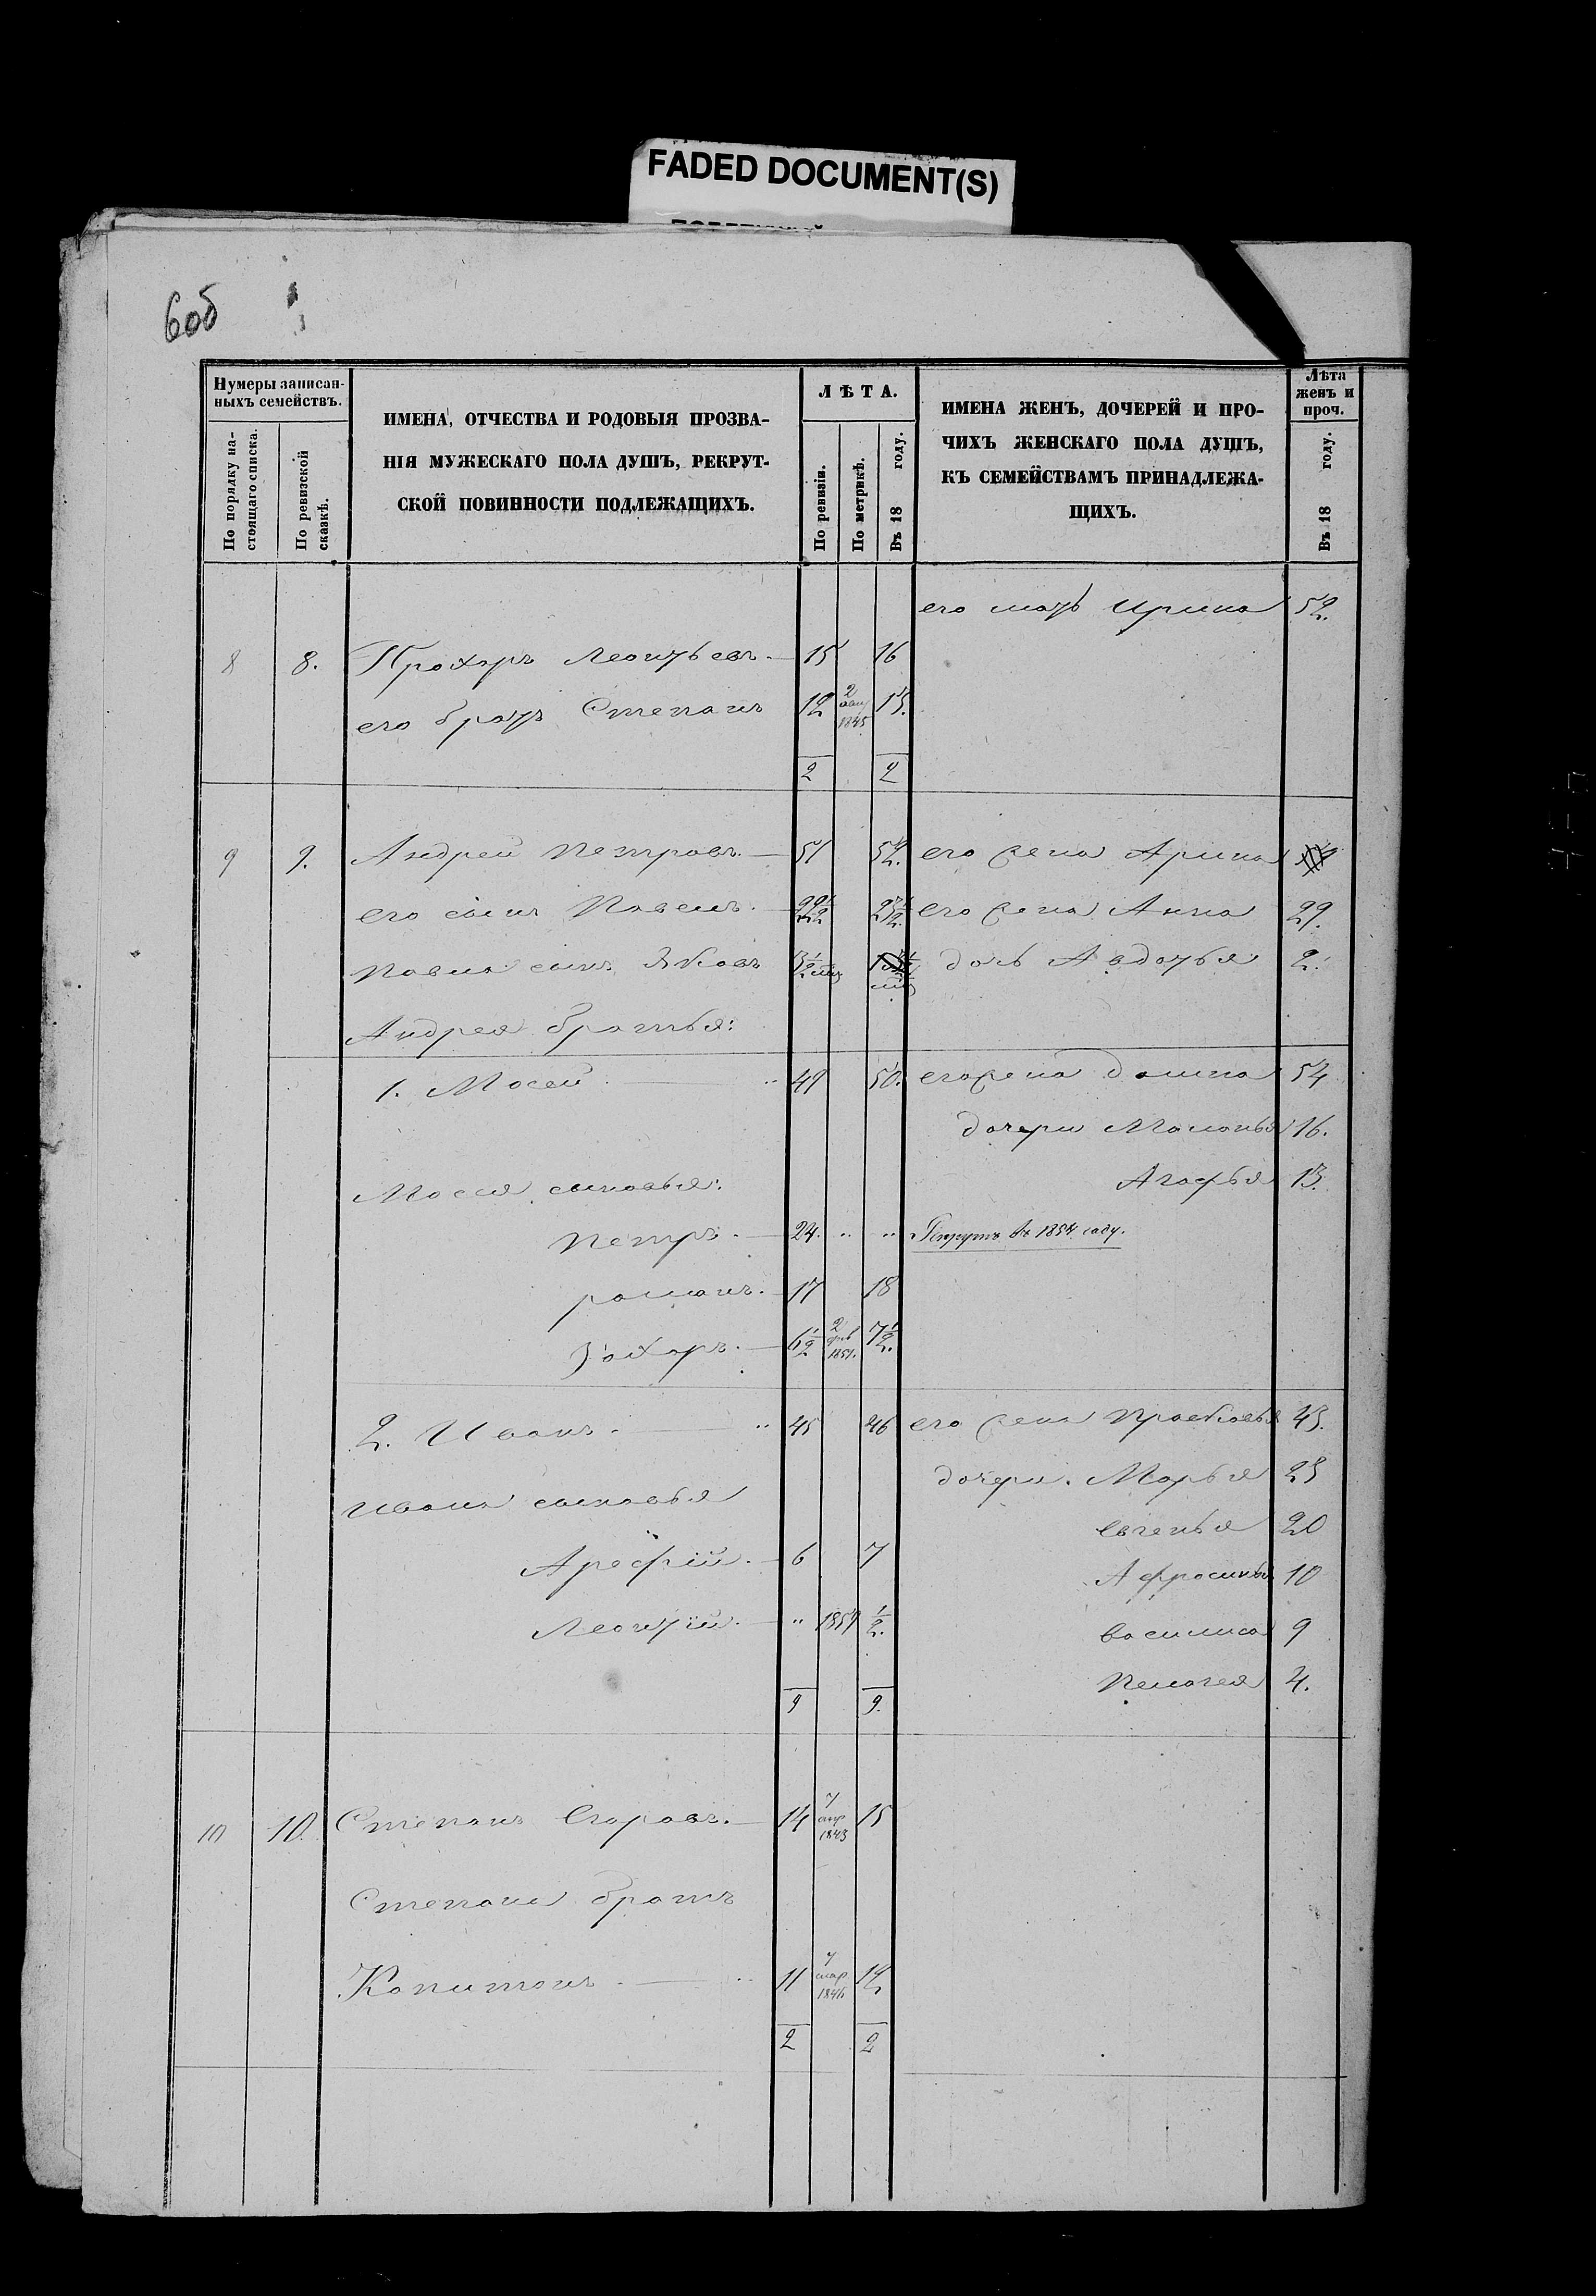 FADED DOCUMENT(S)
6об
Нумеры записан-
ныхъ семействъ.
По порядку на-
стоящаго списка.
По ревизской
сказкѣ.
ИМЕНА, ОТЧЕСТВА И РОДОВЫЯ ПРОЗВА-
НІЯ МУЖЕСКАГО ПОЛА ДУШЪ, РЕКРУТ-
СКОЙ ПОВИННОСТИ ПОДЛЕЖАЩИХЪ.
ЛѢТА.
По ревизіи.
По метрикѣ.
Въ 18 году.
ИМЕНА ЖЕНЪ, ДОЧЕРЕЙ И ПРО-
ЧИХЪ ЖЕНСКАГО ПОЛА ДУШЪ,
КЪ СЕМЕЙСТВАМЪ ПРИНАДЛЕЖА-
ЩИХЪ.
Лѣта
женъ и
проч.
Въ 18 году.
его мать Ирина 52.
8 8. Прохоръ Леонтьевъ. 15 16
его братъ Степанъ 12 2 1845 13.
2 2
9 9. Андрей Петровъ. 51 52. его жена Арина
его сынъ Павелъ. 22½ 23½ его жена Анна 29.
Павла сынъ Яковъ дочь Авдотья 2.
Андрея братья:
1. Мосей. 49 50. его жена Домна 54
дочери Маланья 16.
Мосея сыновья: Агафья 13.
Петръ. 24. Рекрутъ въ 1854 году.
Романъ. 17 18
Захаръ. 6½ 2 фев 1851. 7½.
2. Иванъ. 45 46 его жена Прасковья 43.
дочери. Марья 23
Ивана сыновья
Евгенья 20
Арефій. 6 7
Афросинья 10
Леонтій. 1857 ½.
Василиса 9
Пелагея 4.
9 9.
10 10. Степанъ Егоровъ. 14 7 апр 1843 15
Степана братъ
Капитонъ. 11 7 мар 1846 12
2 2